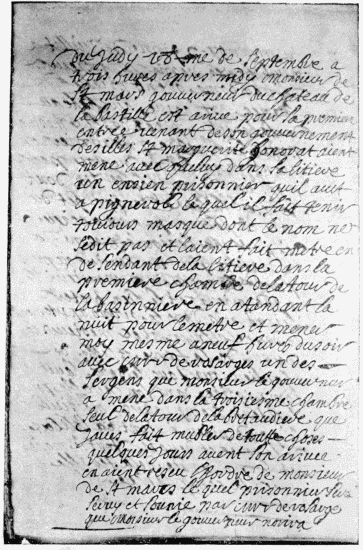 du judy 18me de septembre a
trois heures apres midy monsieur de
st mars gouverneur du chateau de
la bastille est arivé pour sa premiere
entree venant de son gouvernement
des illes st marguerite honorat aient
mené avec luy dans sa litiere
un ensien prisonnier quil avet
a pignerol le quel il fait tenir
toujours masqué dont le nom ne
se dit pas et laient fait metre en
desendant de la litiere dans la
premiere chambre de la tour de
la basinniere en atendant la
nuit pour le metre et mener
moy mesme a neuf heures du soir
avec mr de rosarges un des
sergens que monsieur le gouverneur
a mené dans la troisiesme chambre
seul de la tour de la bretaudiere que
javes fait mubler de toutte choses
quelques jours avent son arivee
en aient reseu lhordre de monsieur
de st mars le quel prisonnier sera
servy et sounie par mr de rosarge
que monsieur le gouverneur norira